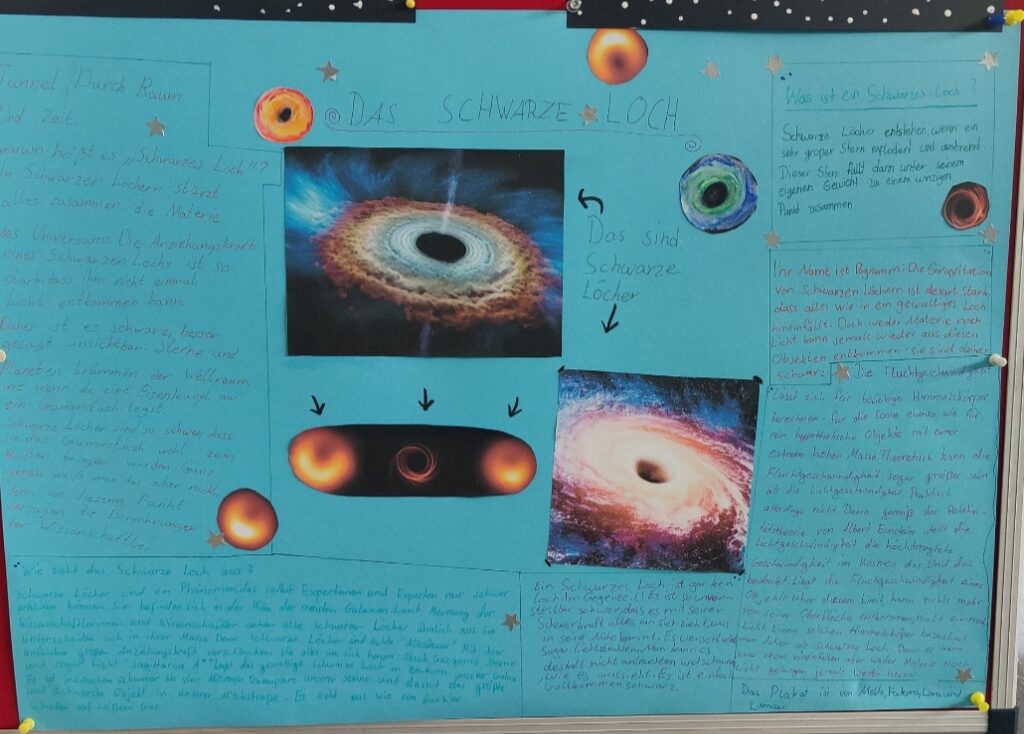 DAS SCHWARZE LOCH
Tunnel Durch Raum
Und Zeit.
warum heißt es „Schwarzes Loch"?
In Schwarzen Löchern stürzt
alles zusammen: die Materie
des Universums. Die Anziehungskraft
eines Schwarzen Lochs ist so
stark, dass ihm nicht einmal
Licht entkommen kann.
Daher ist es schwarz, besser
gesagt unsichtbar. Sterne und
Planeten krümmen den Weltraum,
wie wenn du eine Eisenkugel auf
ein Gummituch legst.
Schwarze Löcher sind so schwer, dass
sie das Gummituch wohl zum
Reißen bringen würden. Ganz
genau weiß man das aber nicht,
denn in diesem Punkt
versagen die Berechnungen
der Wissenschaftler.
Das sind
Schwarze
Löcher
Was ist ein Schwarzes Loch?
Schwarze Löcher entstehen, wenn ein
sehr großer Stern explodiert und ausbrennt.
Dieser Stern fällt dann unter seinem
eigenen Gewicht zu einem winzigen
Punkt zusammen
Ihr Name ist Programm: Die Gravitation
von Schwarzen Löchern ist derart stark,
dass alles wie in ein gewaltiges Loch
hineinfällt. Doch weder Materie noch
Licht kann jemals wieder aus diesen
Objekten entkommen - sie sind daher
schwarz. Die Fluchtgeschwindigkeit
lässt sich für beliebige Himmelskörper
berechnen - für die Sonne ebenso wie für
rein hypothetische Objekte mit einer
extrem hohen Masse. Theoretisch kann die
Fluchtgeschwindigkeit sogar größer sein
als die Lichtgeschwindigkeit. Praktisch
allerdings nicht. Denn gemäß der Relativi-
tätstheorie von Albert Einstein stellt die
Lichtgeschwindigkeit die höchstmögliche
Geschwindigkeit im Kosmos dar. Und das
bedeutet: Liegt die Fluchtgeschwindigkeit eines
Objekts über diesem Limit, kann nichts mehr
von seiner Oberfläche entkommen, nicht einmal
Licht. Einen solchen Himmelskörper bezeichnet
man daher als schwarzes Loch. Denn es kann
zwar etwas hineinfallen, aber weder Materie noch
Licht gelangen jemals wieder heraus
Wie sieht das Schwarze Loch aus?
Schwarze Löcher sind ein Phänomen, das selbst Expertinnen und Experten nur schwer
erklären können. Sie befinden sich in der Mitte der meisten Galaxien. Laut Meinung der
Wissenschaftlerinnen und Wissenschaftler sehen alle Schwarzen Löcher ähnlich aus. Sie
unterscheiden sich in ihrer Masse. Denn Schwarze Löcher sind echte "Allesfresser". Mit ihrer
unfassbar großen Anziehungskraft verschlucken sie alles um sich herum: Staub, Gas, ganze Sterne
und sogar Licht. "Sagittarius A*" das gewaltige Schwarze Loch im Zentrum unserer Galaxie
Es ist inzwischen schwerer als vier Millionen Exemplare unserer Sonne und damit das größte
und schwerste Objekt in unserer Milchstraße. Es sieht aus wie ein dunkler
Schatten auf heißem Gas.
Ein Schwarzes Loch ist gar kein
Loch. Im Gegenteil! Es ist so unvor-
stellbar schwer, dass es mit seiner
Schwerkraft alles an sich zieht, was
in seine Nähe kommt. Es verschluckt
Sogar Lichtstrahlen. Man kann es
deshalb nicht anleuchten, um schauen,
wie es aussieht. Es ist einfach
vollkommen schwarz.
Das Plakat ist von Melih, Fatema, und
Lamar